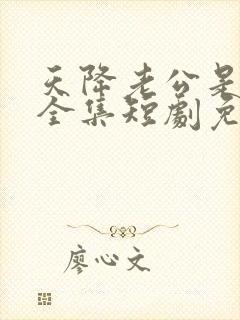 天降老公是
全集短劇免
廖心文